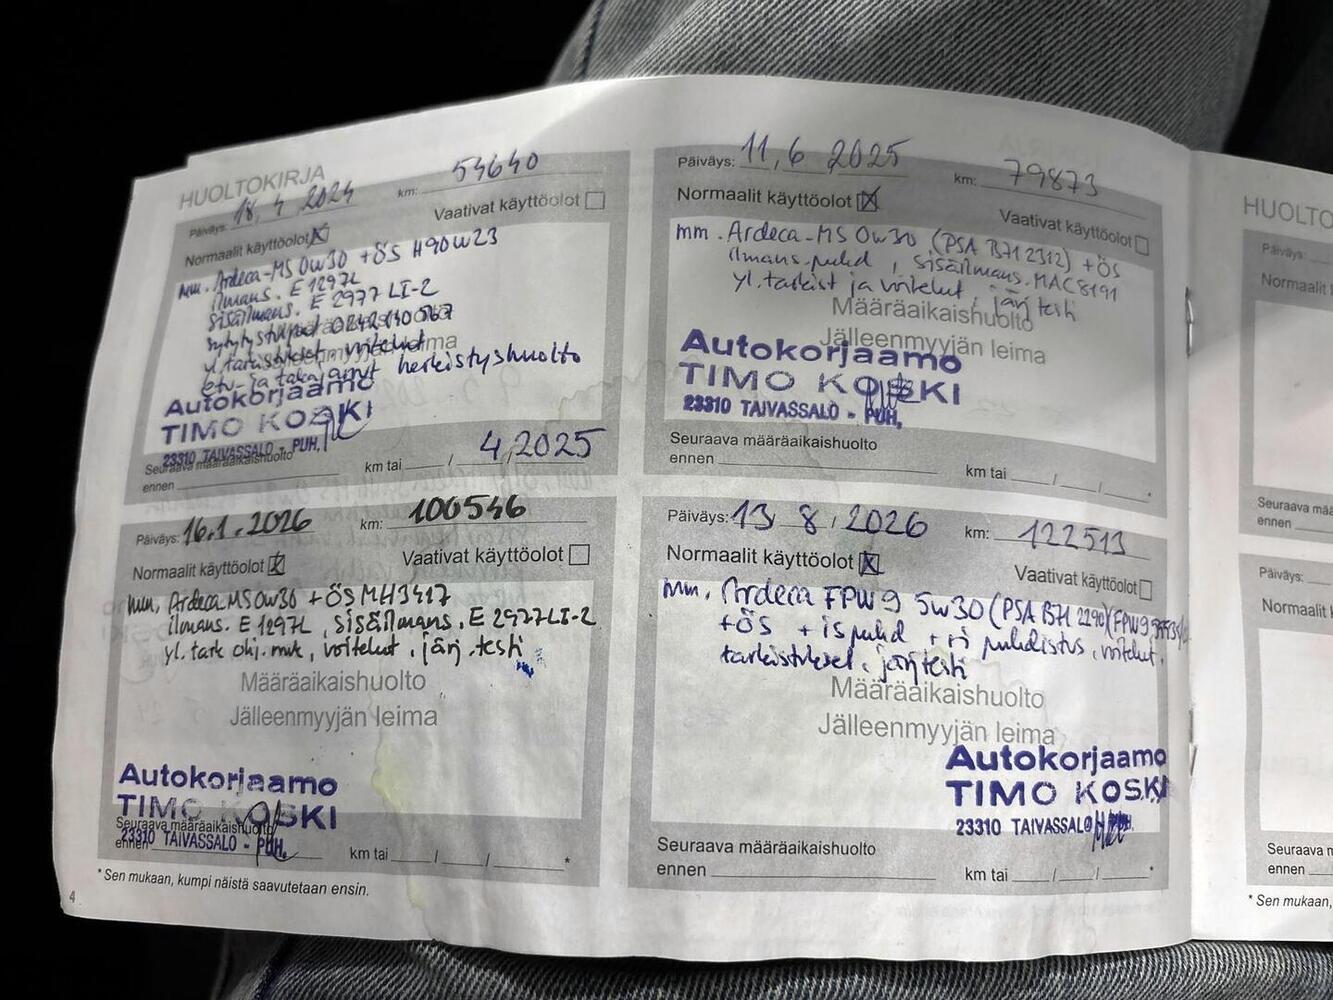 HUOLTOKIRJA
Päiväys: 18, 4 2024 km: 54640
Normaalit käyttöolot Vaativat käyttöolot
mm. Ardeca-MS 0W30 + ÖS H90W23
ilmans. E 1297L
sisäilmans. E 2977 LI-2
sytytystulpat 0242140567
yl.tarkistukset, voitelut
etu- ja takajarrut herkistyshuolto
Autokorjaamo
TIMO KOSKI
23310 TAIVASSALO - PUH.
Seuraava määräaikaishuolto
ennen km tai / 4,2025
Päiväys: 11, 6 2025 km: 79873
Normaalit käyttöolot Vaativat käyttöolot
mm. Ardeca-MS 0W30 (PSA B71 2312) + ÖS
ilmans.puhd , sisäilmans. MAC8191
yl.tarkist ja voitelut, järj testi
Määräaikaishuolto
Jälleenmyyjän leima
Autokorjaamo
TIMO KOSKI
23310 TAIVASSALO - PUH.
Seuraava määräaikaishuolto
ennen km tai / / *
Päiväys: 16.1.2026 km: 100546
Normaalit käyttöolot Vaativat käyttöolot
mm, Ardeca MS 0W30 + ÖS MH3417
ilmans. E 1297L , sisäilmans. E 2977LI-2
yl. tark ohj. muk, voitelut, järj. testi
Määräaikaishuolto
Jälleenmyyjän leima
Autokorjaamo
TIMO KOSKI
Seuraava määräaikaishuolto
23310 TAIVASSALO - PUH.
ennen km tai / / *
* Sen mukaan, kumpi näistä saavutetaan ensin.
4
Päiväys: 13 8 2026 km: 122513
Normaalit käyttöolot Vaativat käyttöolot
mm. Ardeca FPW9 5W30 (PSA B71 2290)(FPW9
+ÖS + is puhd + ri puhdistus, voitelut,
tarkistukset, järj testi
Määräaikaishuolto
Jälleenmyyjän leima
Autokorjaamo
TIMO KOSKI
23310 TAIVASSALO
Seuraava määräaikaishuolto
ennen km tai / / *
HUOLTO
Päiväys:
Normaalit
Seuraava mää
ennen
Päiväys:
Normaalit
Seuraava m
ennen
* Sen mukaan,